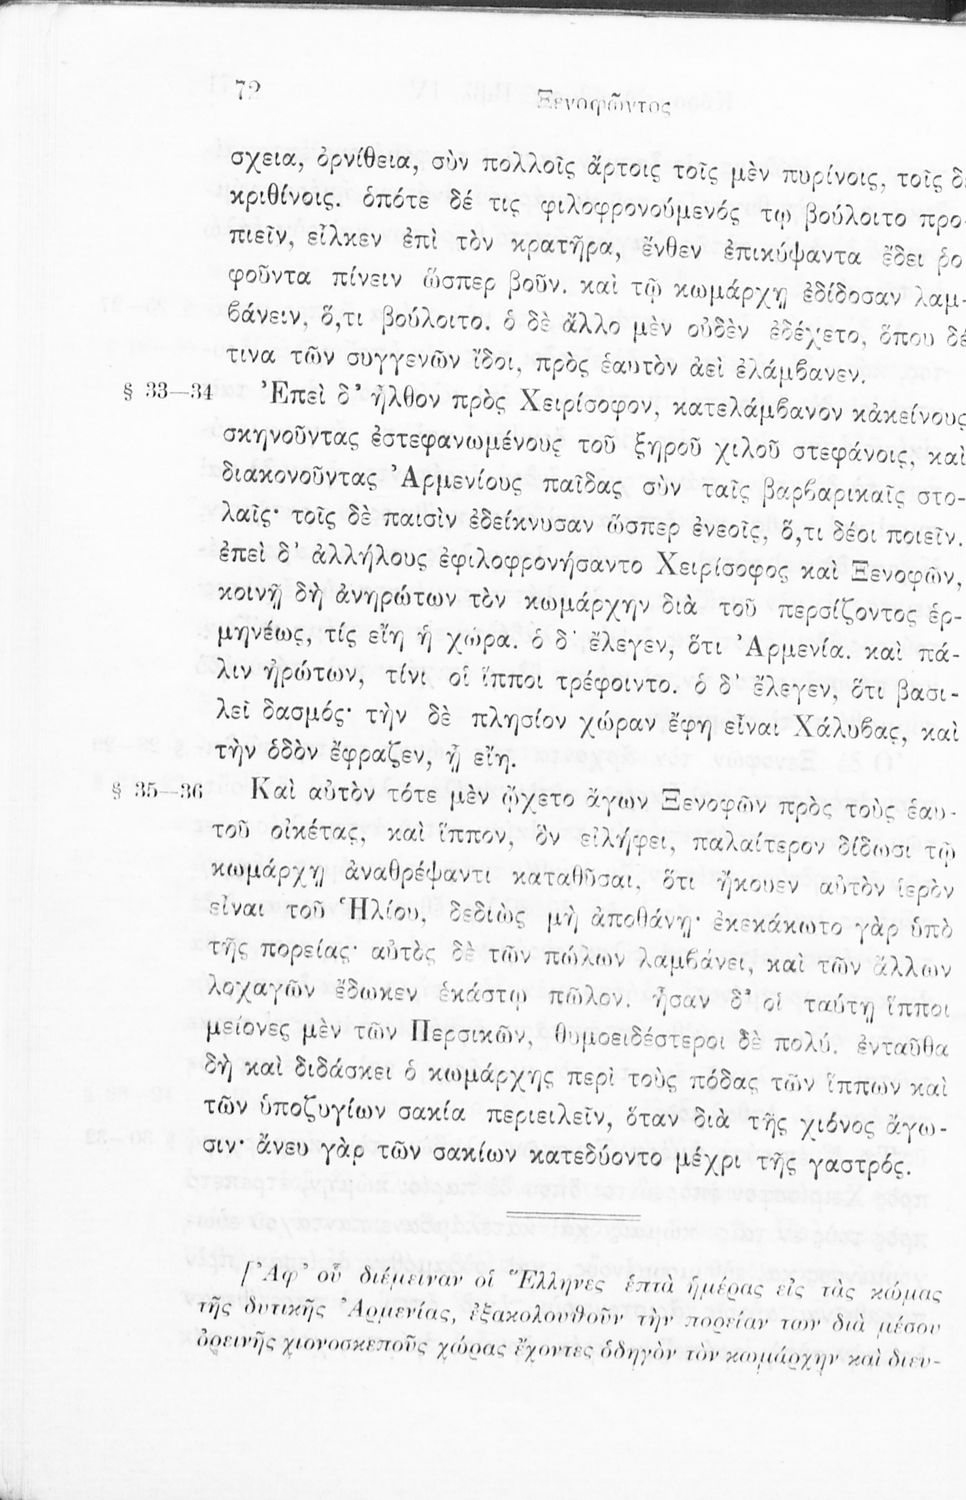 72
Ξενοφῶντος
σχεια, ὀρνίθεια, σὺν πολλοῖς ἄρτοις τοῖς μὲν πυρίνοις, τοῖς δὲ
κριθίνοις. ὁπότε δέ τις φιλοφρονούμενός τῳ βούλοιτο προ-
πιεῖν, εἷλκεν ἐπὶ τὸν κρατῆρα, ἔνθεν ἐπικύψαντα ἔδει ῥο-
φοῦντα πίνειν ὥσπερ βοῦν. καὶ τῷ κωμάρχῃ ἐδίδοσαν λαμ-
βάνειν, ὅ,τι βούλοιτο. ὁ δὲ ἄλλο μὲν οὐδὲν ἐδέχετο, ὅπου δέ
τινα τῶν συγγενῶν ἴδοι, πρὸς ἑαυτὸν ἀεὶ ἐλάμβανεν.
§ 33—34 Ἐπεὶ δ' ἦλθον πρὸς Χειρίσοφον, κατελάμβανον κἀκείνους
σκηνοῦντας ἐστεφανωμένους τοῦ ξηροῦ χιλοῦ στεφάνοις, καὶ
διακονοῦντας Ἀρμενίους παῖδας σὺν ταῖς βαρβαρικαῖς στο-
λαῖς· τοῖς δὲ παισὶν ἐδείκνυσαν ὥσπερ ἐνεοῖς, ὅ,τι δέοι ποιεῖν.
ἐπεὶ δ' ἀλλήλους ἐφιλοφρονήσαντο Χειρίσοφος καὶ Ξενοφῶν,
κοινῇ δὴ ἀνηρώτων τὸν κωμάρχην διὰ τοῦ περσίζοντος ἑρ-
μηνέως, τίς εἴη ἡ χώρα. ὁ δ' ἔλεγεν, ὅτι Ἀρμενία. καὶ πά-
λιν ἠρώτων, τίνι οἱ ἵπποι τρέφοιντο. ὁ δ' ἔλεγεν, ὅτι βασι-
λεῖ δασμός· τὴν δὲ πλησίον χώραν ἔφη εἶναι Χάλυβας, καὶ
τὴν ὁδὸν ἔφραζεν, ᾗ εἴη.
§ 35—36 Καὶ αὐτὸν τότε μὲν ᾤχετο ἄγων Ξενοφῶν πρὸς τοὺς ἑαυ-
τοῦ οἰκέτας, καὶ ἵππον, ὃν εἰλήφει, παλαίτερον δίδωσι τῷ
κωμάρχῃ ἀναθρέψαντι καταθῦσαι, ὅτι ἤκουεν αὐτὸν ἱερὸν
εἶναι τοῦ Ἡλίου, δεδιὼς μὴ ἀποθάνῃ· ἐκεκάκωτο γὰρ ὑπὸ
τῆς πορείας· αὐτὸς δὲ τῶν πώλων λαμβάνει, καὶ τῶν ἄλλων
λοχαγῶν ἔδωκεν ἑκάστῳ πῶλον. ἦσαν δ' οἱ ταύτῃ ἵπποι
μείονες μὲν τῶν Περσικῶν, θυμοειδέστεροι δὲ πολύ. ἐνταῦθα
δὴ καὶ διδάσκει ὁ κωμάρχης περὶ τοὺς πόδας τῶν ἵππων καὶ
τῶν ὑποζυγίων σακία περιειλεῖν, ὅταν διὰ τῆς χιόνος ἄγω-
σιν· ἄνευ γὰρ τῶν σακίων κατεδύοντο μέχρι τῆς γαστρός.
[Ἀφ' οὗ διέμειναν οἱ Ἕλληνες ἑπτὰ ἡμέρας εἰς τὰς κώμας
τῆς δυτικῆς Ἀρμενίας, ἐξακολουθοῦν τὴν πορείαν των διὰ μέσου
ὀρεινῆς χιονοσκεποῦς χώρας ἔχοντες ὁδηγὸν τὸν κωμάρχην καὶ διευ-